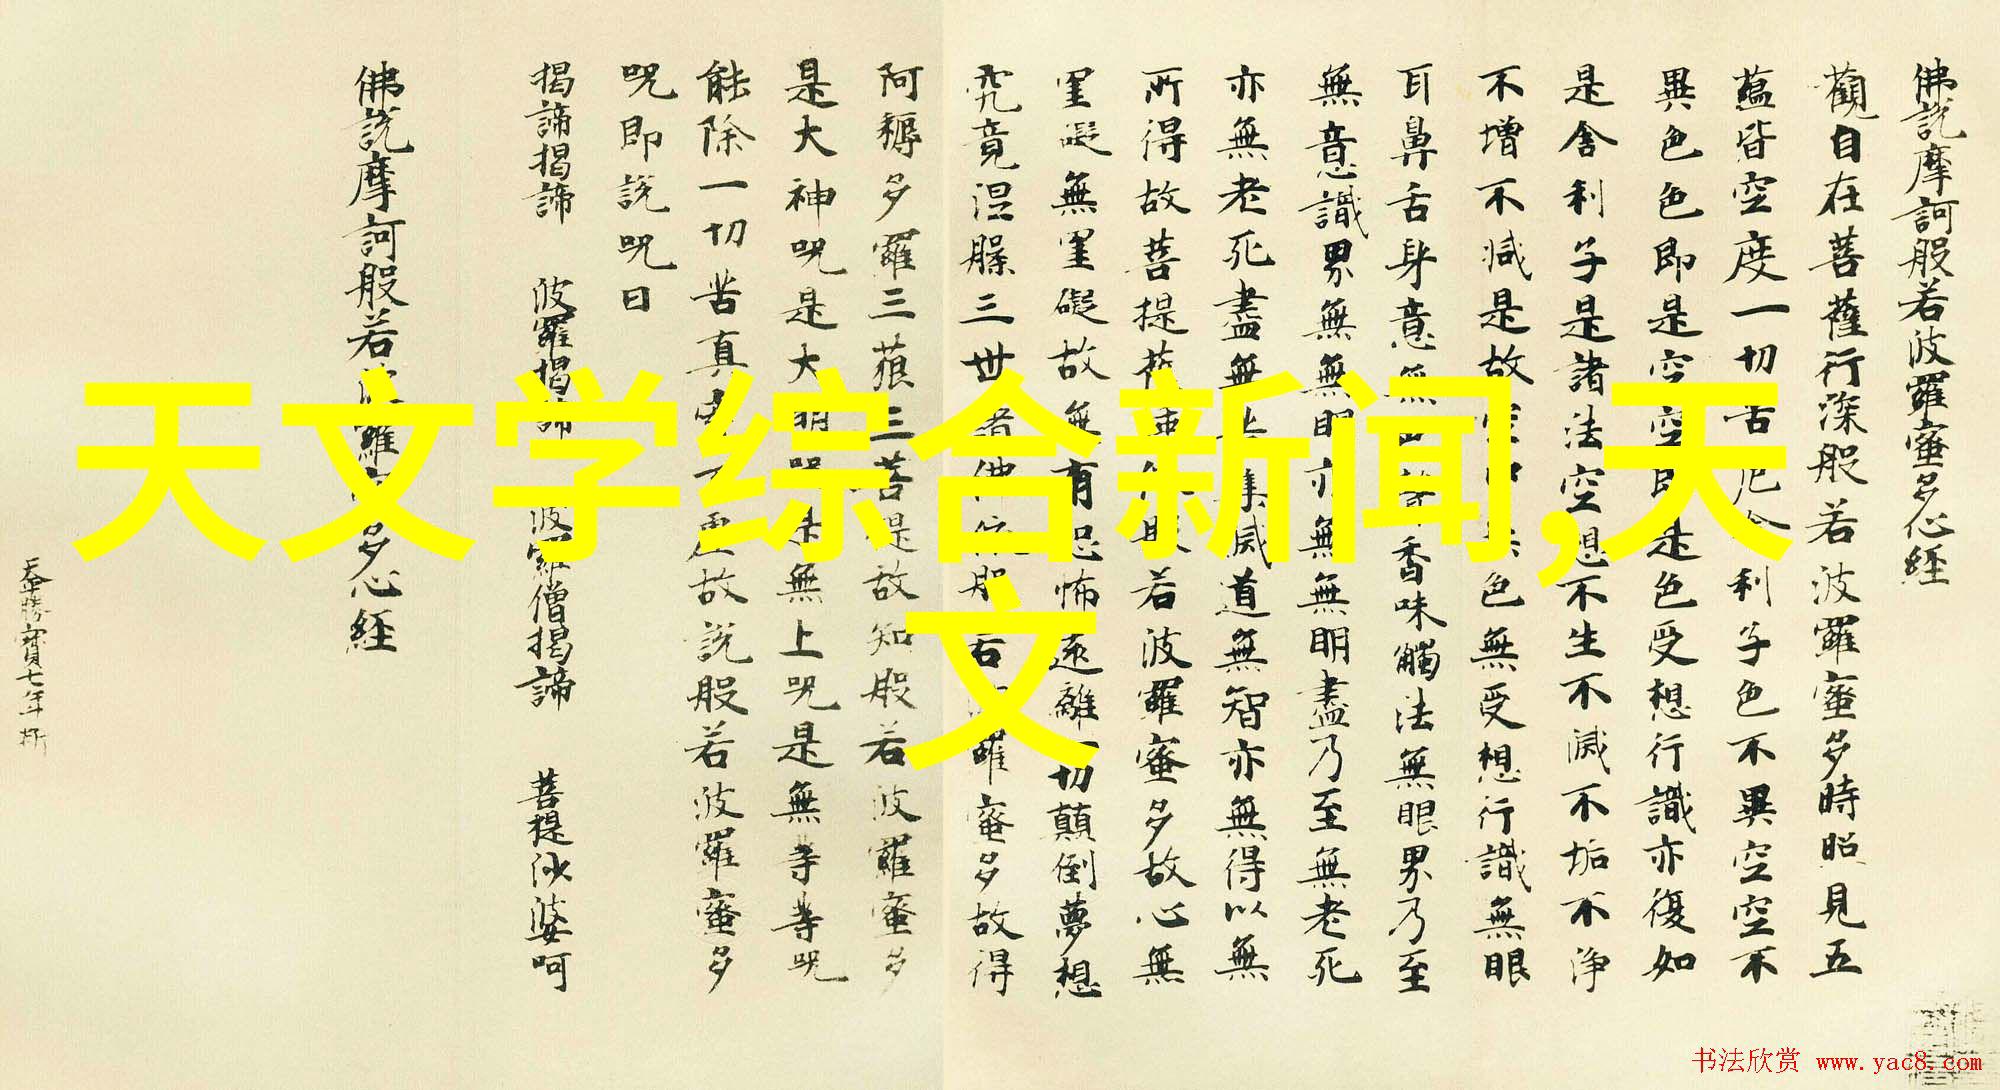 佛說摩訶般若波羅蜜多心經
觀自在菩薩行深般若波羅蜜多時照見五
蘊皆空度一切苦厄舍利子色不異空空不
異色色即是空空即是色受想行識亦復如
是舍利子是諸法空想不生不滅不垢不淨
不增不減是故空中無色無受想行識無眼
耳鼻舌身意無色聲香味觸法無眼界乃至
無意識界無無明亦無無明盡乃至無老死
亦無老死盡無苦集滅道無智亦無得以無
所得故菩提薩埵依般若波羅蜜多故心無
罣礙無罣礙故無有恐怖遠離一切顛倒夢想
究竟涅槃三世諸佛依般若波羅蜜多故得
阿耨多羅三藐三菩提故知般若波羅蜜多
是大神咒是大明咒是無上咒是無等等咒
能除一切苦真實不虛故說般若波羅蜜多
咒即說咒曰
揭諦揭諦 波羅揭諦 波羅僧揭諦 菩提沙婆呵
佛說摩訶般若波羅蜜多心經
天文学综合新闻,天
文
书法欣赏 www.yac8.com